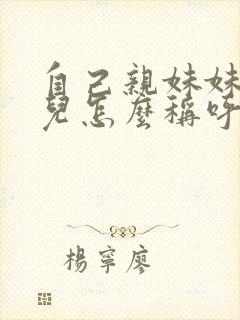 自己親妹妹
兒怎麼稱呼
楊寧廖